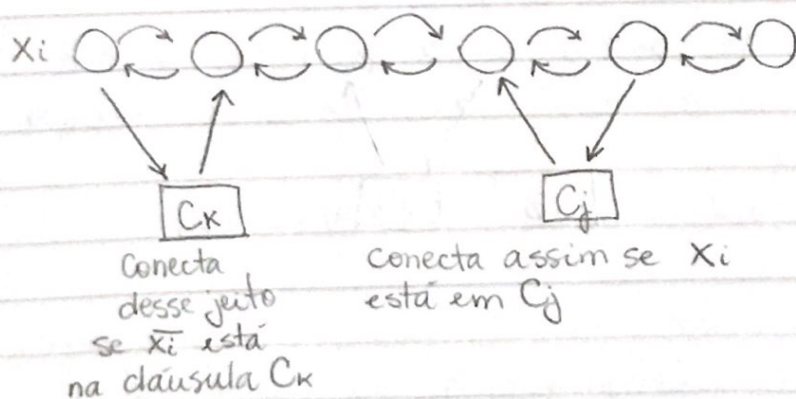 Xi
Ck
Cj
Conecta
desse jeito
se x̄i está
na cláusula Ck
conecta assim se Xi
está em Cj